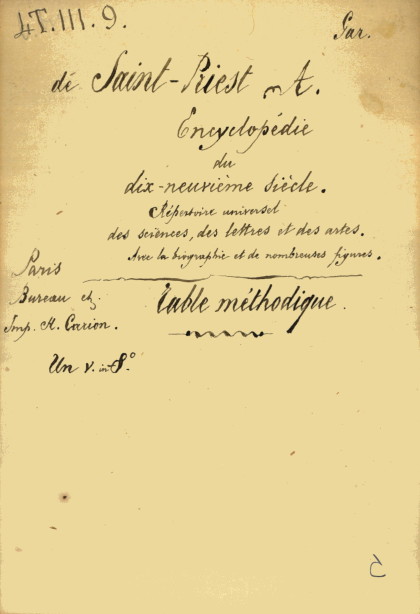 4T.III.9.
Gar.
de Saint-Priest A.
Encyclopédie
du
dix-neuvième siècle.
Répertoire universel
des sciences, des lettres et des artes.
Avec la biographie et de nombreuses figures.
Paris
Bureau et
Imp. H. Carion.
Table méthodique.
Un v. in 8º.